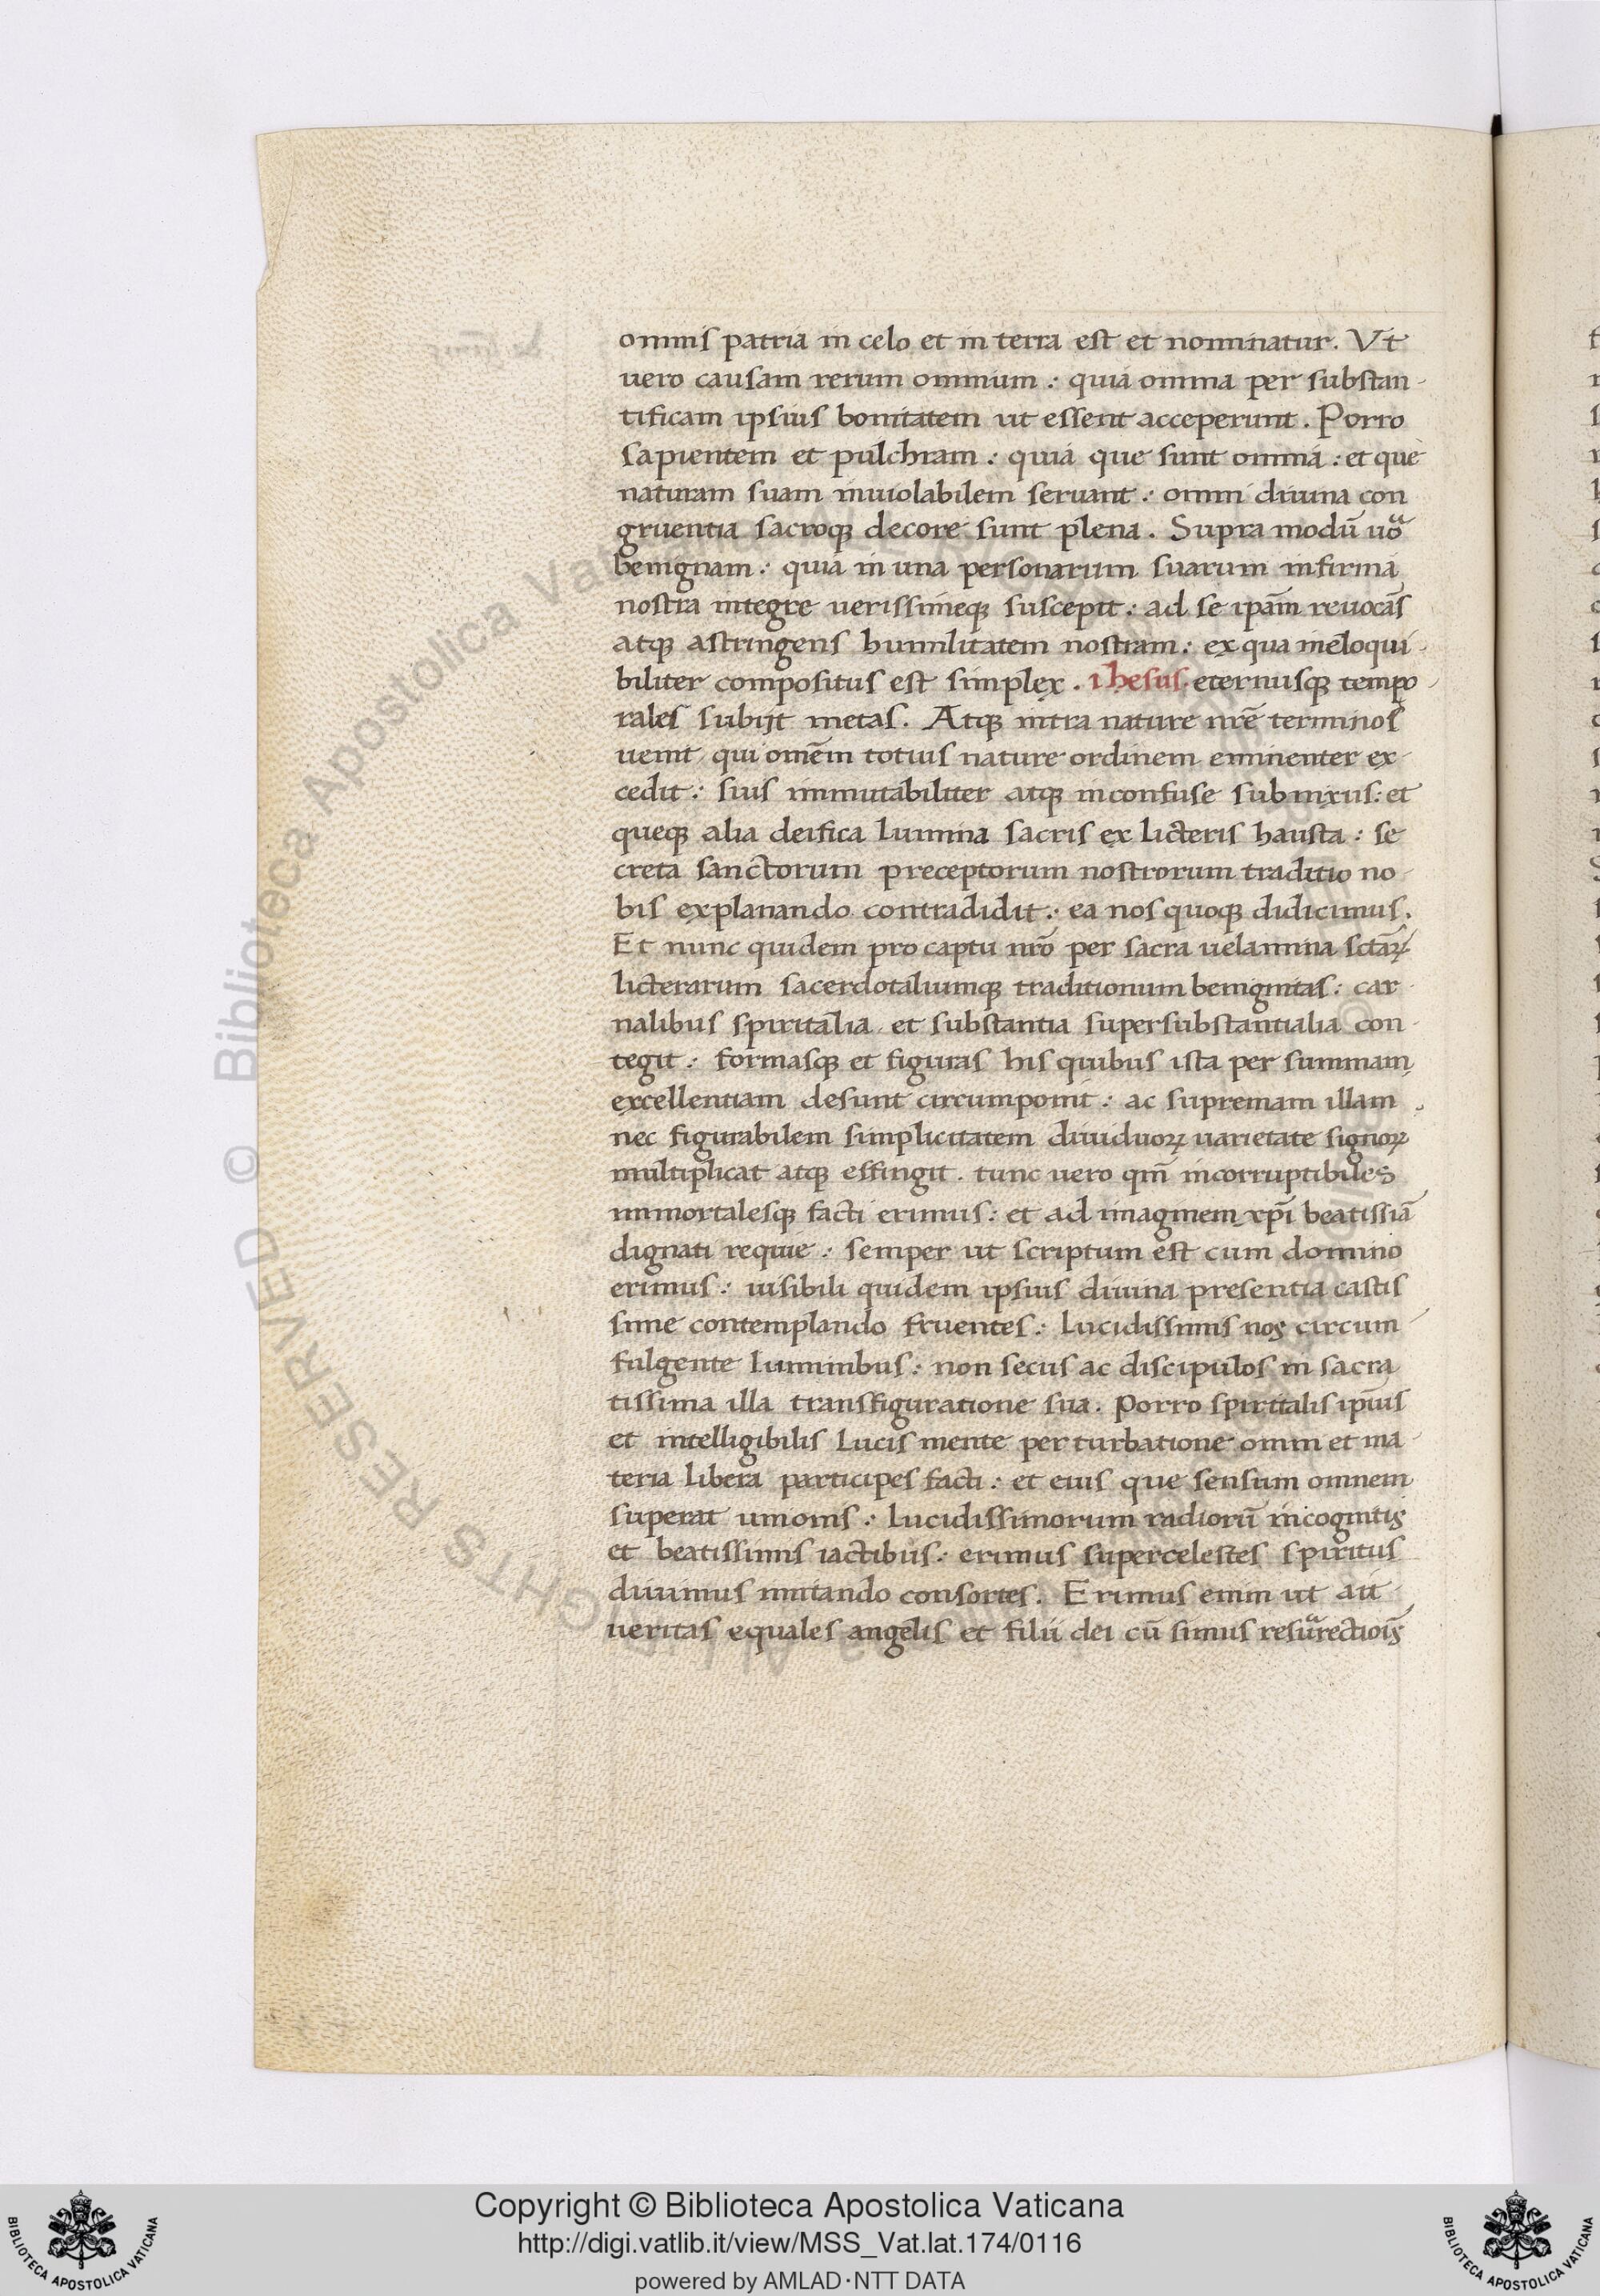 omnis patria in celo et in terra est et nominatur. Vt
uero causam rerum omnium: quia omnia per substan-
tificam ipsius bonitatem ut essent acceperunt. Porro
sapientem et pulchram: quia que sunt omnia: et que
naturam suam inuiolabilem seruant: omni diuina con
gruentia sacroqꝫ decore sunt plena. Supra modū uͣo
benignam: quia in una personarum suarum infirma
nostra integre uerissimeqꝫ suscepit: ad se ip̄am reuocās
atqꝫ astringens humilitatem nostram: ex qua ineloqui-
biliter compositus est simplex. ihesus. eternusqꝫ tempo-
rales subijt metas. Atqꝫ intra nature nr̄e terminos
uenit, qui omēm totius nature ordinem eminenter ex-
cedit: suis immutabiliter atqꝫ inconfuse submixus: et
queqꝫ alia deifica lumina sacris ex licteris hausta: se
creta sanctorum preceptorum nostrorum traditio no-
bis explanando contradidit: ea nos quoqꝫ didicimus.
Et nunc quidem pro captu nr̄o per sacra uelamina sctāꝝ
licterarum sacerdotaliumqꝫ traditionum benignitas: car-
nalibus spiritalia, et substantia supersubstantialia con-
tegit: formasqꝫ et figuras his quibus ista per summam
excellentiam desunt circumponit: ac supremam illam
nec figurabilem simplicitatem diuiduoꝝ uarietate signoꝝ
multiplicat atqꝫ effingit. tunc uero qm̄ incorruptibiles
immortalesqꝫ facti erimus: et ad imaginem xp̄i beatissiā
dignati requie: semper ut scriptum est cum domino
erimus: uisibili quidem ipsius diuina presentia castis
sime contemplando fruentes: lucidissimis nos circum-
fulgente luminibus: non secus ac discipulos in sacra
tissima illa transfiguratione sua. Porro spiritalis ip̄ius
et intelligibilis lucis mente perturbatione omni et ma-
teria libera participes facti: et eius que sensum omnem
superat unionis: lucidissimorum radiorū incognitis
et beatissimis iactibus: erimus supercelestes spiritus
diuinius imitando consortes. Erimus enim ut ait
ueritas equales angelis et filii dei cū simus resuͣrectiōis
Copyright © Biblioteca Apostolica Vaticana
http://digi.vatlib.it/view/MSS_Vat.lat.174/0116
powered by AMLAD·NTT DATA
BIBLIOTECA APOSTOLICA VATICANA
BIBLIOTECA APOSTOLICA VATICANA